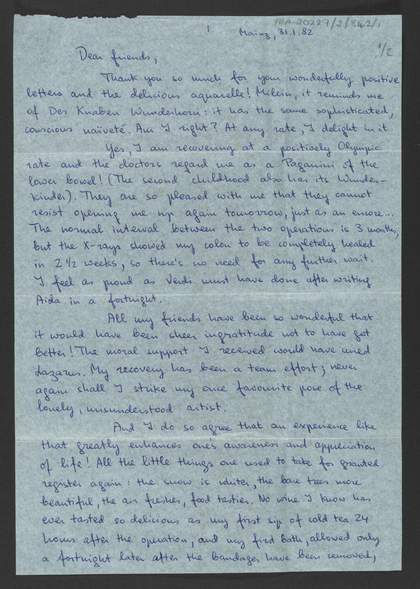 1
Mainz, 31.1.82
1/2
Dear friends,
Thank you so much for your wonderfully positive
letters and the delicious aquarelle! Milein, it reminds me
of Des Knaben Wunderhorn: it has the same sophisticated,
conscious naiveté. Am I right? At any rate, I delight in it.
Yes, I am recovering at a positively Olympic
rate and the doctors regard me as a Paganini of the
lower bowel! (The second childhood also has its Wunder-
kinder). They are so pleased with me that they cannot
resist opening me up again tomorrow, just as an encore...
The normal interval between the two operations is 3 months,
but the X-rays showed my colon to be completely healed
in 2 1/2 weeks, so there's no need for any further wait.
I feel as proud as Verdi must have done after writing
Aida in a fortnight.
All my friends have been so wonderful that
it would have been sheer ingratitude not to have got
better! The moral support I received would have cured
Lazarus. My recovery has been a team effort; never
again shall I strike my once favourite pose of the
lonely, misunderstood artist.
And I do so agree that an experience like
that greatly enhances one's awareness and appreciation
of life! All the little things one used to take for granted
register again: the snow is whiter, the bare trees more
beautiful, the air fresher, food tastier. No wine I know has
ever tasted so delicious as my first sip of cold tea 24
hours after the operation, and my first bath, allowed only
a fortnight later after the bandages have been removed,